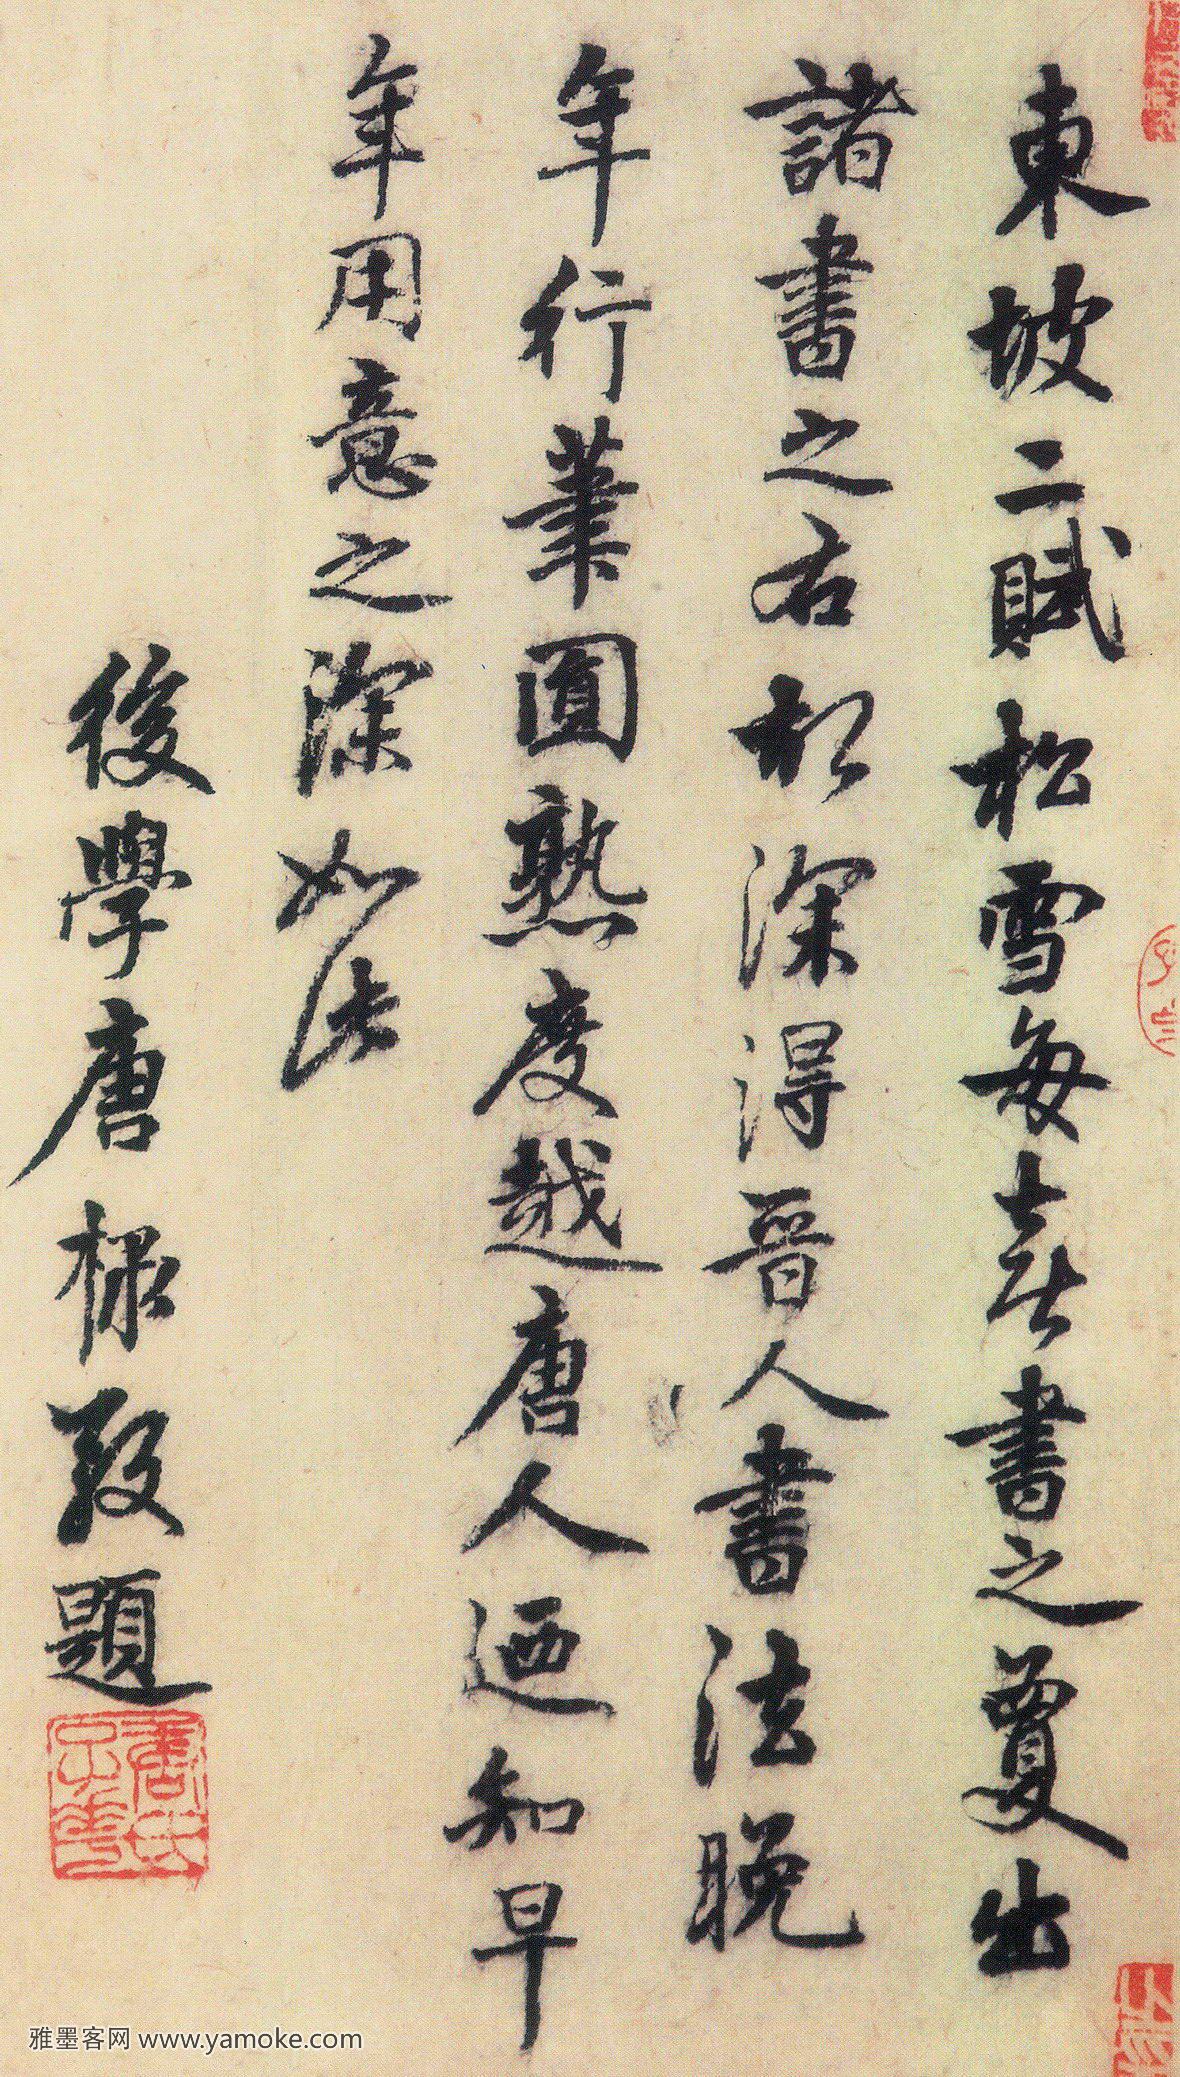 東坡二賦松雪每喜書之夐出
諸書之右深得晉人書法晚
年行筆圓熟度越唐人迺知早
年用意之深如此
後學唐棣敬題
唐氏子華
雅墨客网 www.yamoke.com